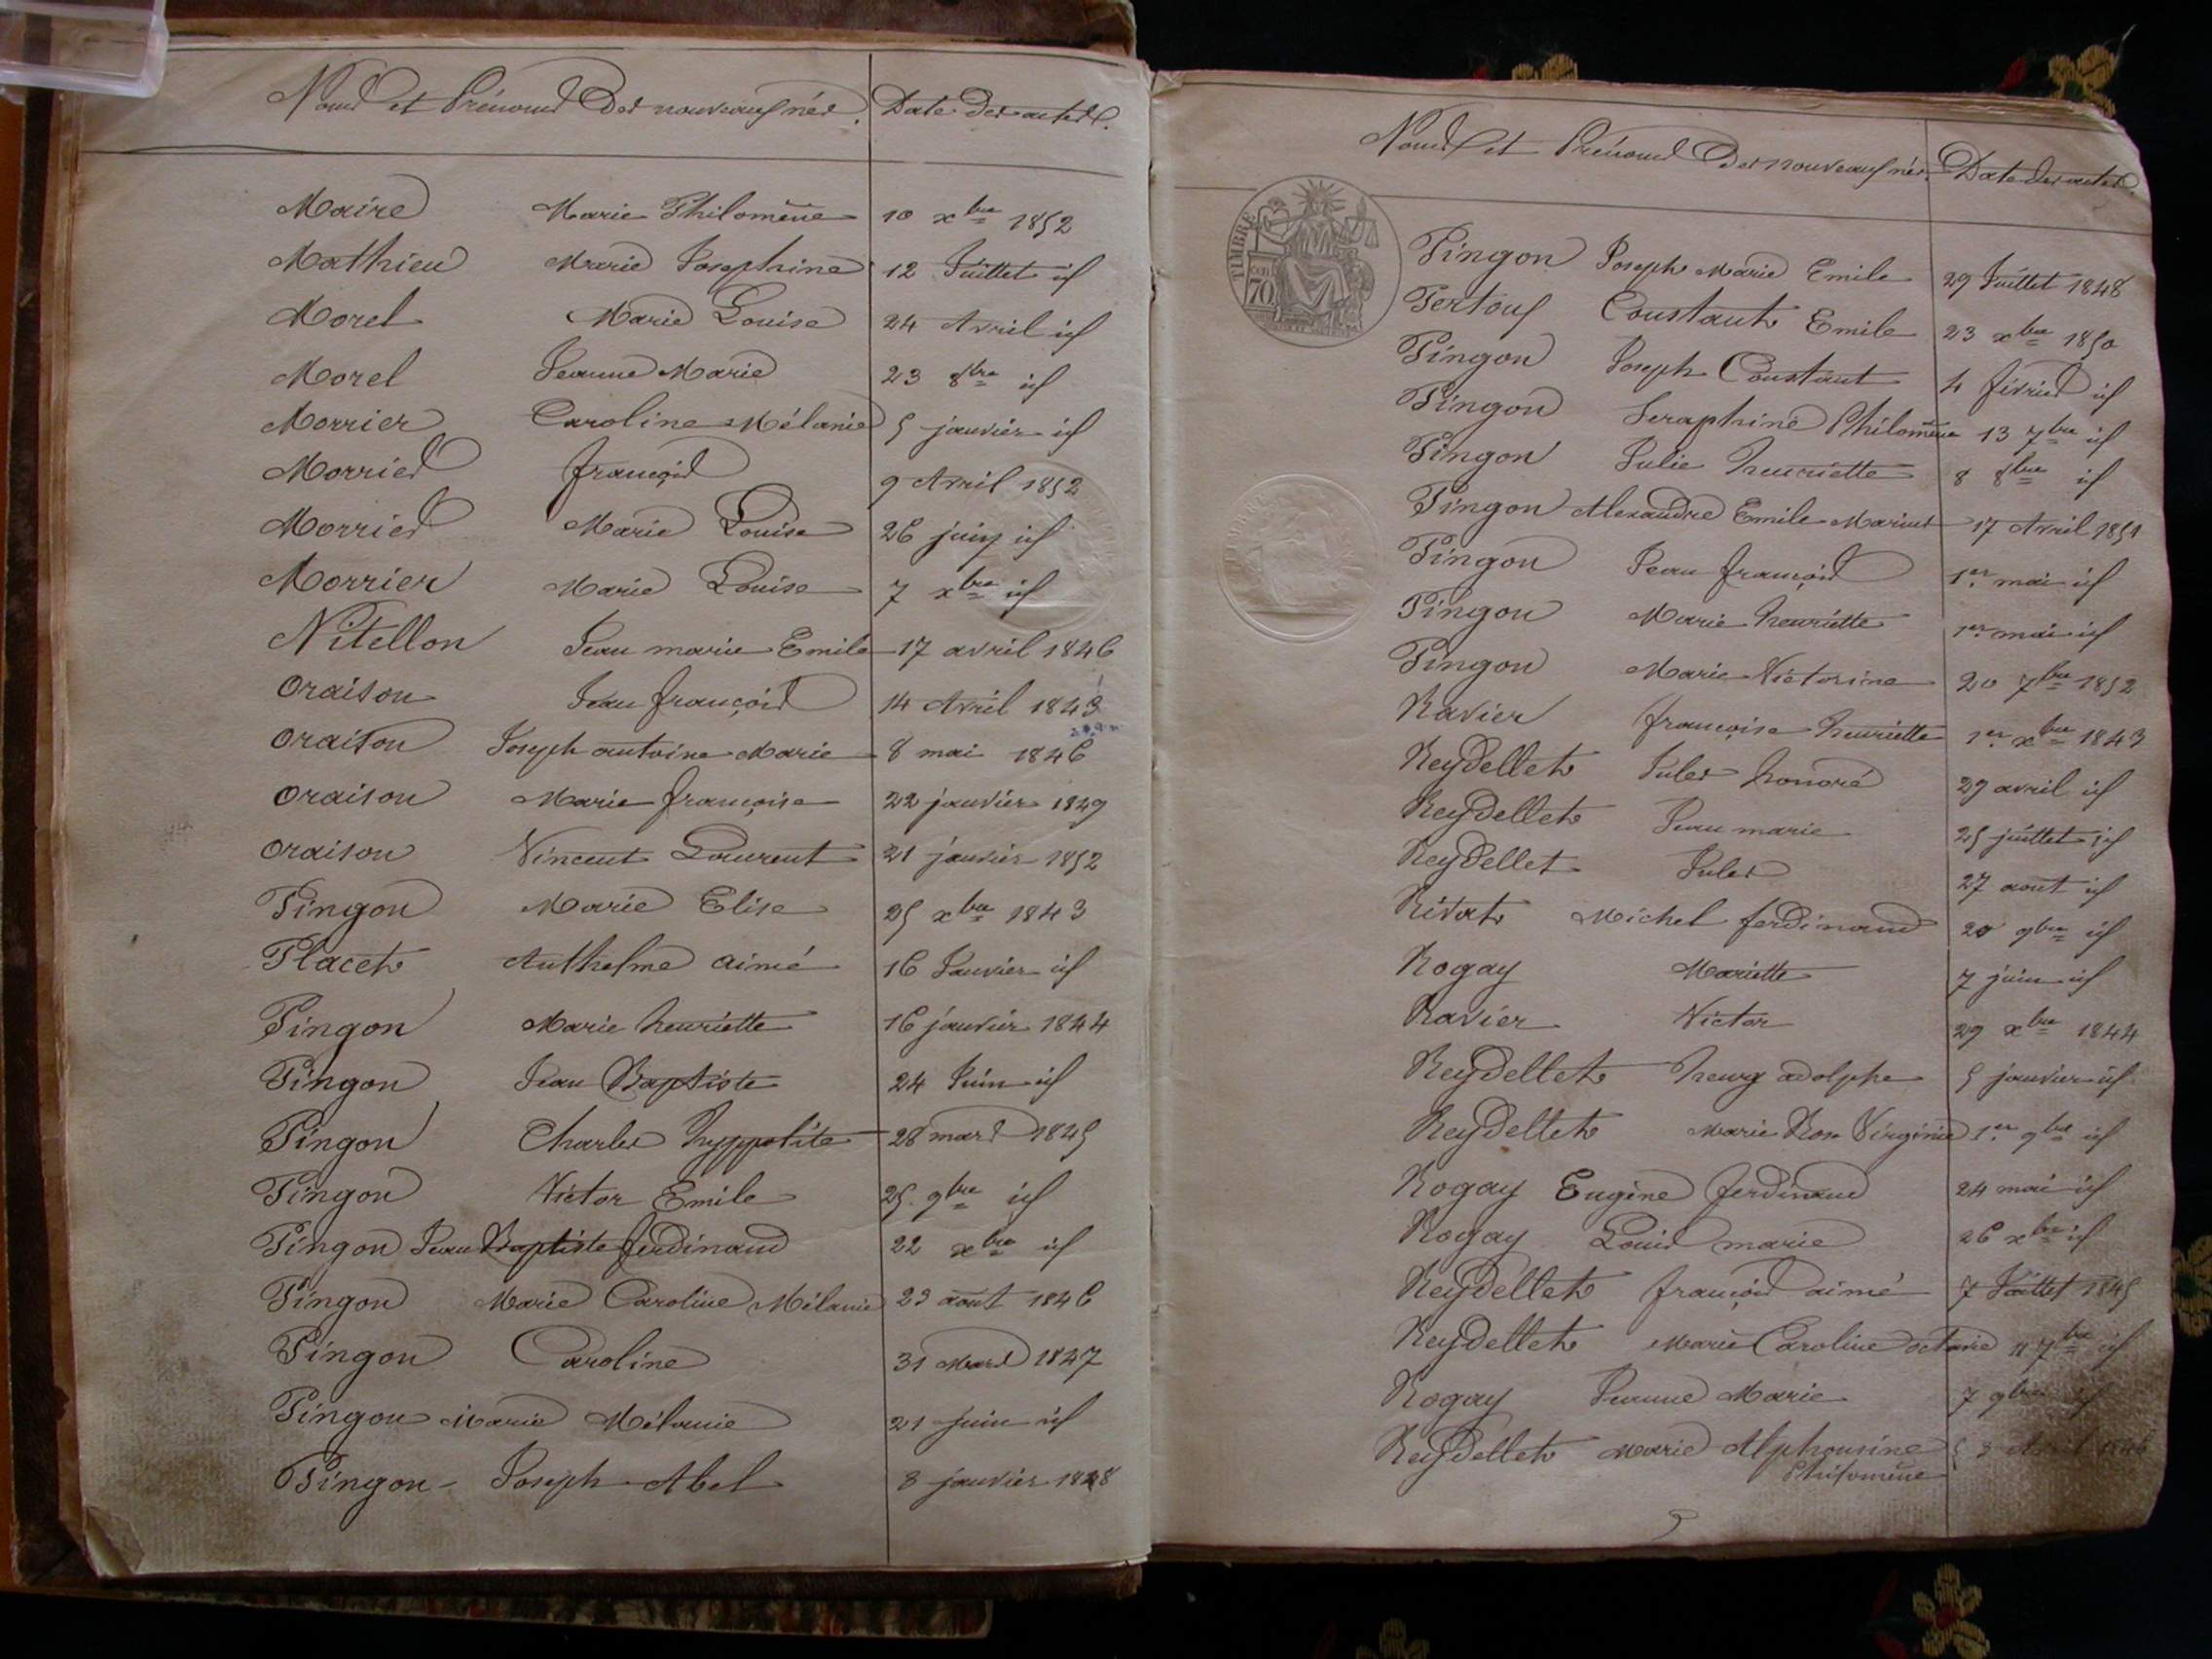 Noms et Prénoms Des nouveaux nés. Date des actes.
Maire Marie Philomène 10 xbre 1852
Mathieu Marie Josephine 12 Juillet id
Morel Marie Louise 24 Avril id
Morel Jeanne Marie 23 8bre id
Morrier Caroline Mélanie 5 janvier id
Morrier françois 9 Avril 1852
Morrier Marie Louise 26 juin id
Morrier Marie Louise 7 xbre id
Nitellon Jean marie Emile 17 avril 1846
Oraison Jean françois 14 Avril 1843
Oraison Joseph antoine Marie 8 mai 1846
Oraison Marie françoise 22 janvier 1849
Oraison Vincent Laurent 21 janvier 1852
Pingon Marie Elise 25 xbre 1843
Placet Anthelme aimé 16 Janvier id
Pingon Marie henriette 16 janvier 1844
Pingon Jean Baptiste 24 Juin id
Pingon Charles hyppolite 28 mars 1845
Pingon Victor Emile 25 9bre id
Pingon Jean Baptiste ferdinand 22 xbre id
Pingon Marie Caroline Mélanie 23 août 1846
Pingon Caroline 31 Mars 1847
Pingon Marie Mélanie 21 Juin id
Pingon - Joseph Abel 3 janvier 1848
Noms et Prénoms Des nouveaux nés. Date des actes
TIMBRE 70
Pingon Joseph Marie Emile 29 Juillet 1848
Pertouf Constant Emile 23 xbre 1850
Pingon Joseph Constant 4 février id
Pingon Seraphine Philomène 13 7bre id
Pingon Julie henriette 8 8bre id
Pingon Alexandre Emile Marius 17 Avril 1851
Pingon Jean françois 1er mai id
Pingon Marie henriette 1er mai id
Pingon Marie Victorine 20 7bre 1852
Ravier françoise henriette 1er xbre 1843
Reydellet Jules honoré 29 avril id
Reydellet Jean marie 25 juillet id
Reydellet Jules 27 aout id
Rivat Michel ferdinand 20 9bre id
Rogay Mariette 7 juin id
Ravier Victor 29 xbre 1844
Reydellet henry adolphe 5 janvier id
Reydellet Marie Rose Virginie 1er 9bre id
Rogay Eugène ferdinand 24 mai id
Rogay Louis marie 26 xbre id
Reydellet françois aimé 7 Juillet 1845
Reydellet Marie Caroline octavie 11 7bre id
Rogay Jeanne Marie 7 9bre id
Reydellet Marie Alphonsine 3 Avril
Philomène